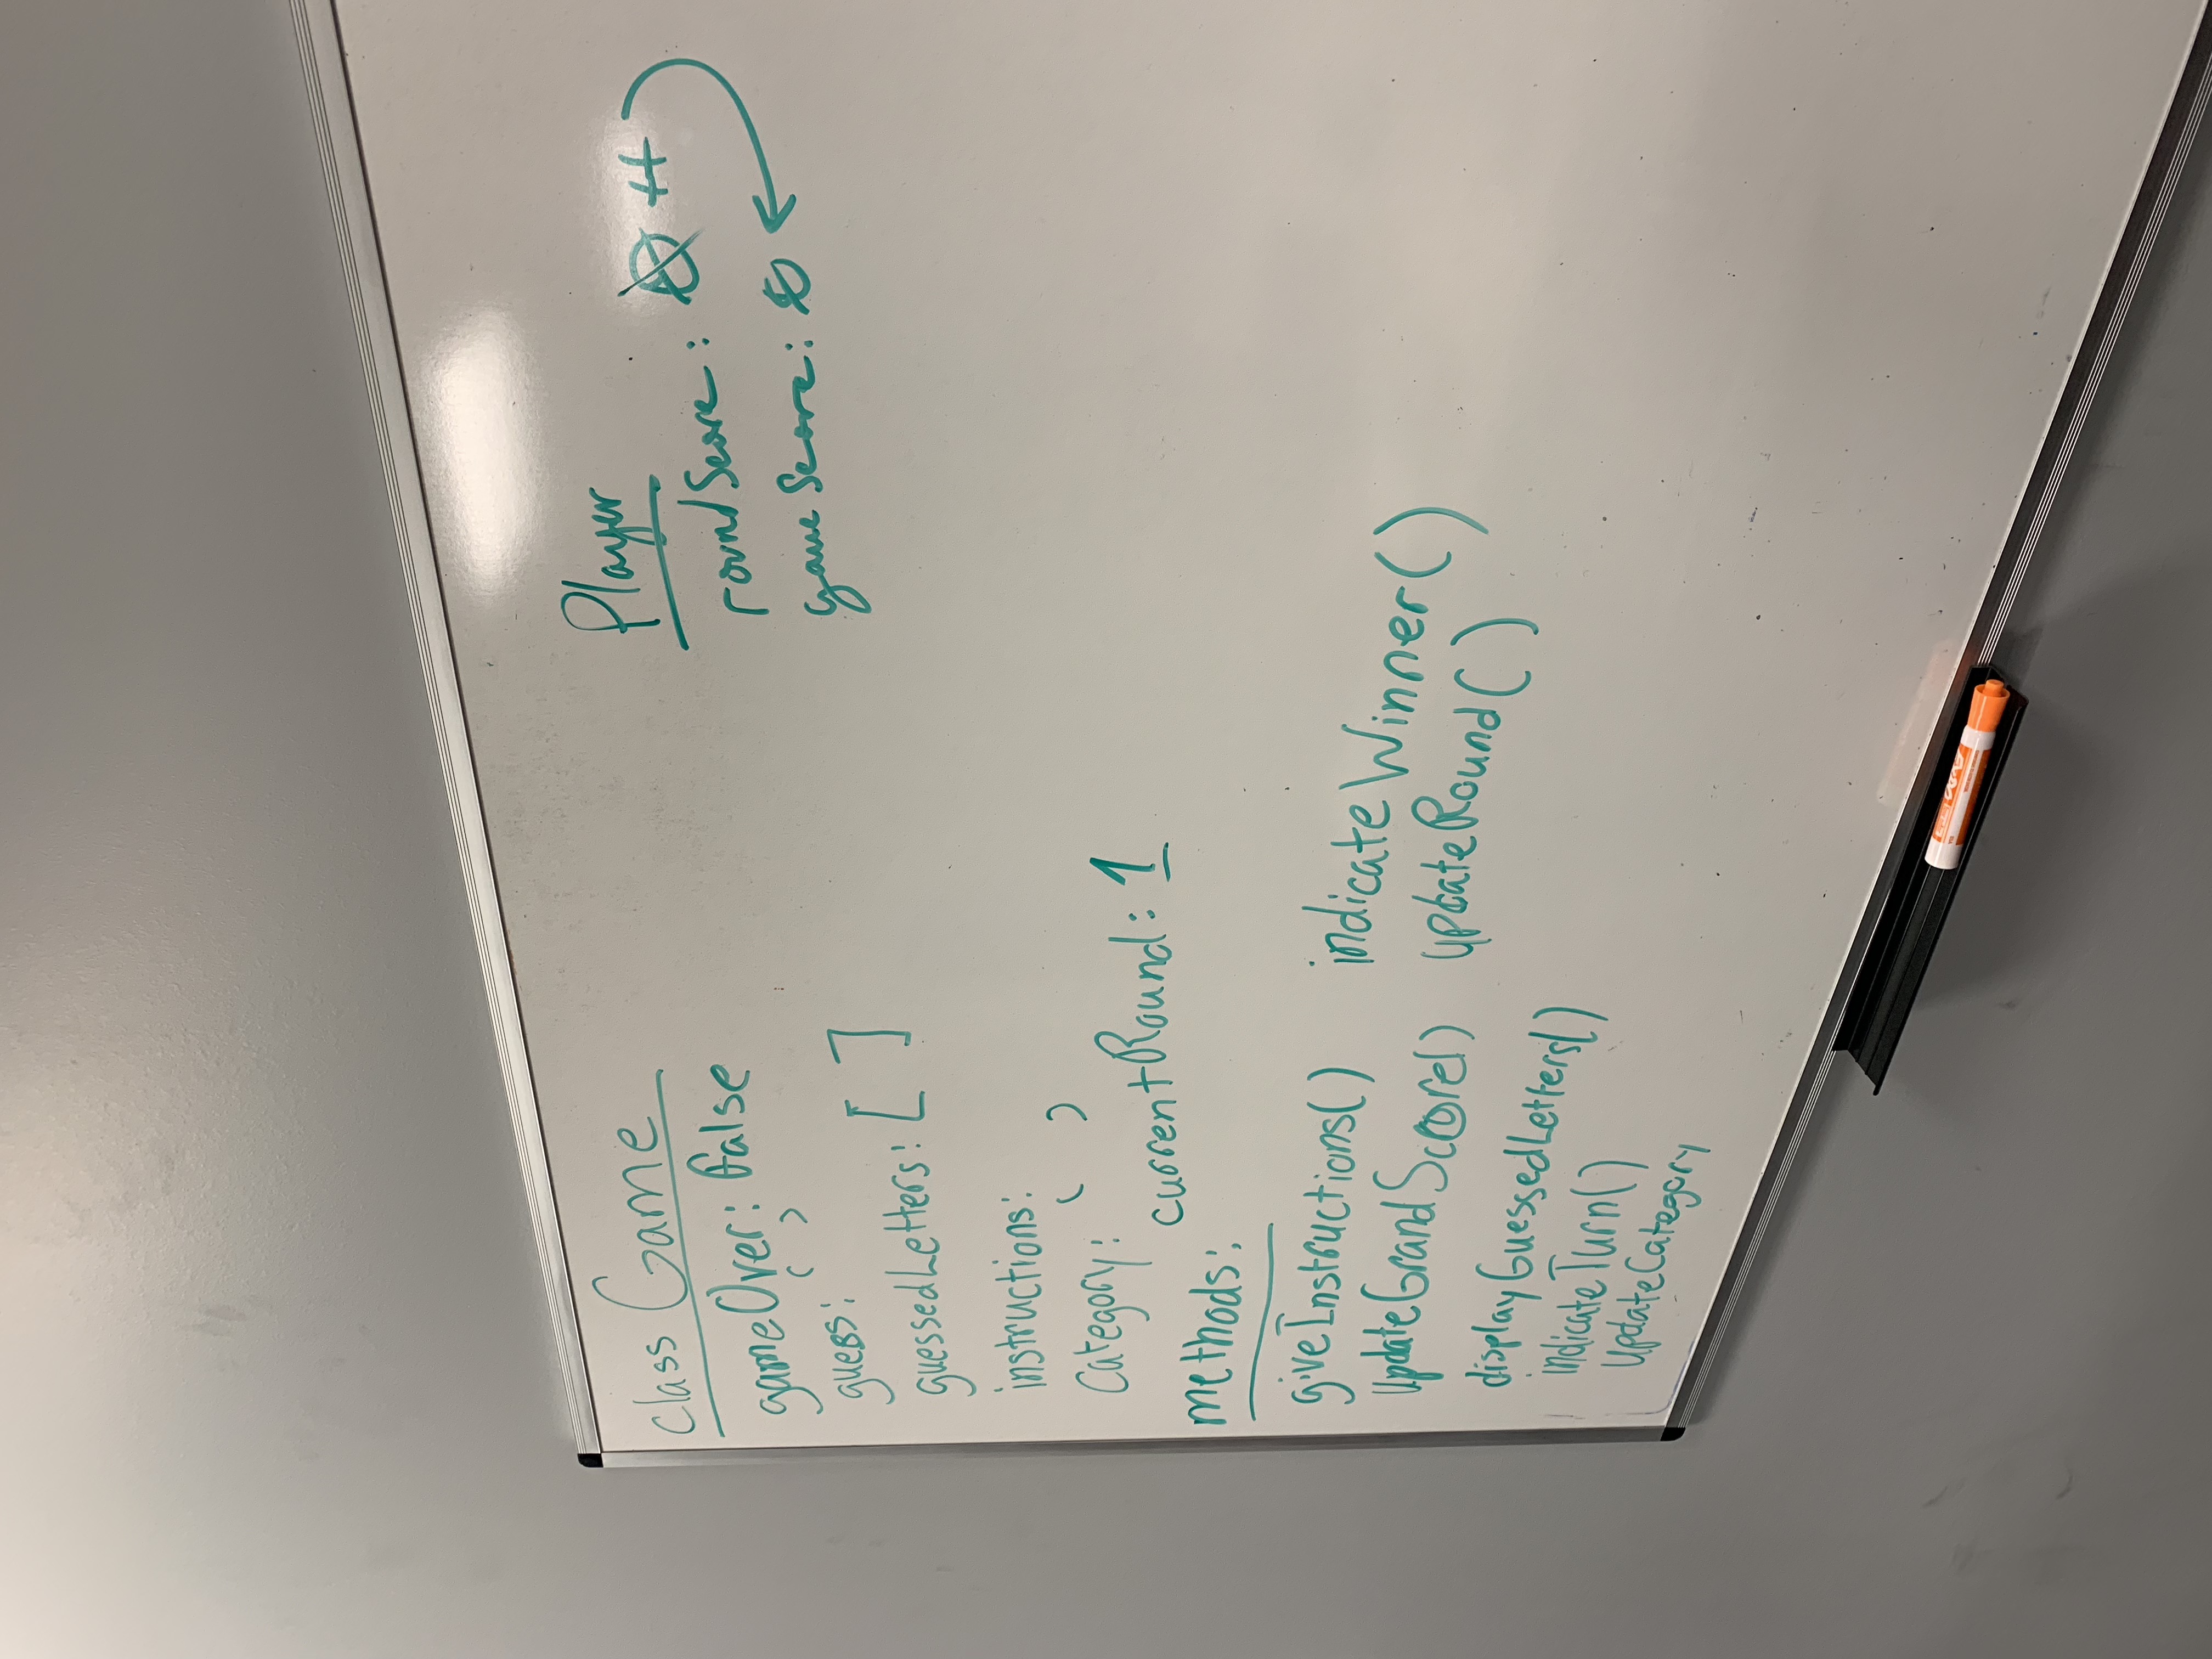 class Game
gameOver: false
guess: ‘ ’
guessedLetters: [ ]
instructions:
Category: ‘ ’
currentRound: 1
methods:
giveInstructions()
updateGrandScore()
displayGuessedLetters()
indicateTurn()
updateCategory
indicateWinner()
updateRound()
Player
roundScore: #
gameScore: 0